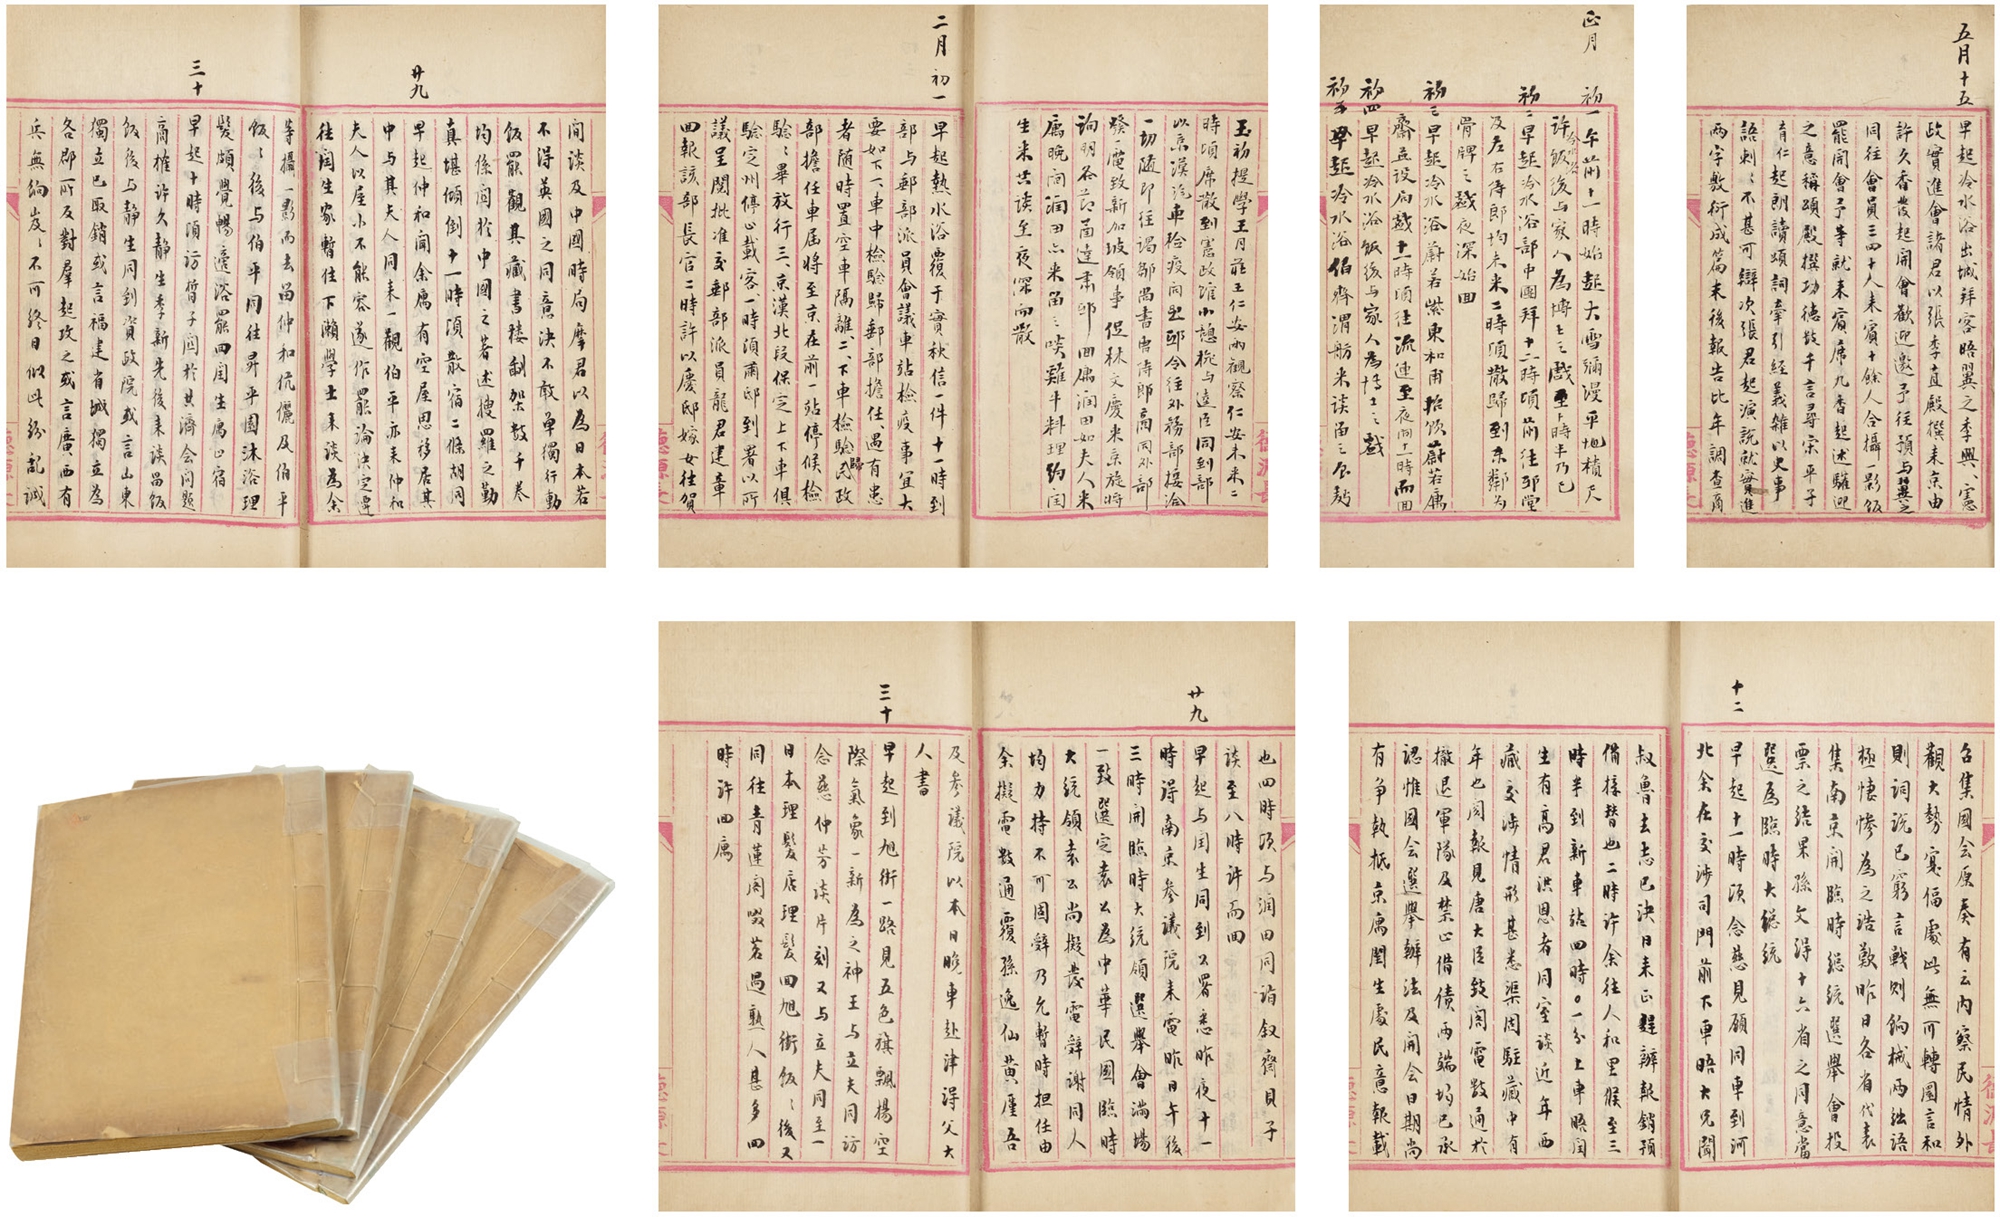 廿九
間談及中國時局摩君以為日本若
不得英國之同意決不敢單獨行動
飯罷觀其藏書樓制架數千卷
均係關於中國之著述搜羅之勤
真堪傾倒十一時頃散宿二條胡同
早起仲和聞余屬有空屋思移居其
中与其夫人同来一觀伯平亦来仲和
夫人以屋小不能容遂作罷論決定遷
往閏生家暫住下瀨學士来談為余
等攝一影而去留仲和伉儷及伯平
飯飯後与伯平同往昇平園沐浴理
髮頗覺暢適浴罷回閏生屬止宿
三十
早起十時頃訪哲子關於共濟会问题
商榷許久靜生季新先後来談留飯
飯後与靜生同到資政院或言山東
獨立已取銷或言福建省城獨立為
各郡所不及對羣起攻之或言廣西有
兵無餉岌岌不可終日似此紛亂誠
玉初提學王月莊王仁安兩觀察仁安未来二
時頃席散到憲政館小憩旋与達臣同到部
以京漢汽車检疫问题邸令往外務部接洽
一切隨即往謁鄒尚書曹侍郎商同外部
發一電致新加坡領事促林文慶来京旋時
詢明各節面達肅邸回屬润田如夫人来
屬晚间润田亦来留之啖雞牛料理約閏
生来共談至夜深而散
二月初一
早起熱水浴覆于實秋信一件十一時到
部与郵部派員會議車站檢疫事宜大
要如下一車中檢驗歸郵部擔任遇有患
者隨時置空車隔離二、下車檢驗歸民政
部擔任車屆將至京在前一站停候檢
驗驗畢放行三、京漢北段保定上下車俱
驗定州停止載客一時須肅邸到署以所
議呈閱批准交郵部派員龍君建章
回報該部長官二時許以慶邸嫁女往賀
正月
初一午前十一時始起大雪彌漫平地積尺
許飯後与家人為博士之戲至上時半乃已
初二早起冷水浴部中團拜十二時頃前往邸堂
及左右侍郎均未来二時頃散歸到东鄰为
骨牌之戲夜深始回
初三早起冷水浴蔚若紫東和甫招飲蔚若屬
齋並設局戲十一時頃往流連至夜间十一時而回
初四早起冷水浴飯後与家人為博士之戲
初五早起冷水浴伯齊渭舫来談留之
五月十五
早起冷水浴出城拜客晤翼之季興、憲
政實進會諸君以張季直殿撰来京由
許久香發起開會歡迎邀予往預与翼之
同往會員三四十人来賓十餘人合攝一影飯
罷開會予等就来賓席九香起述歡迎
之意稱頌殿撰功德數千言尋宗平子
育仁起朗讀頌詞牽引經義雜以史事
語刺刺不甚可辯次張君起演說就實進
兩字敷衍成篇末後報告比年調查商
也四時頃与润田同詣叙齋貝子
談至八時許而回
廿九
早起与閏生同到公署悉昨夜十一
時得南京參議院来電昨日午後
三時開臨時大統領選舉會滿場
一致選定袁公為中華民國臨時
大統領袁公尚擬長電辭謝同人
均力持不可固辭乃允暫時担任由
余擬電數通覆孫逸仙黄廑吾
及參議院以本日晚車赴津得父大
人書
三十
早起到旭街一路見五色旗飄揚空
際氣象一新為之神王与立夫同訪
念慈仲芳談片刻又与立夫同至一
日本理髮店理髮回旭街飯飯後又
同往青蓮閣啜茗遇熟人甚多四
時許回屬
召集國会原奏有云内察民情外
觀大勢寔偪處此無可轉圜言和
則詞説已窮言戰則餉械兩絀語
極悽慘為之浩歎昨日各省代表
集南京開臨時總統選舉會投
票之結果孫文得十六省之同意當
選為臨時大總統
十二
早起十一時頃念慈見願同車到河
北余在交涉司門前下車晤大兄聞
叔魯去志已決日来正趕辦報銷預
備接替也二時許余往人和里候至三
時半到新車站四時〇一分上車晤閏
生有高君洪恩者同室談近年西
藏交涉情形甚悉渠固駐藏中有
年也閱報見唐大臣致閣電數通於
撤退軍隊及禁止借債兩端均已承
認惟國会選舉辦法及開会日期尚
有爭執抵京屬閏生處民意報載